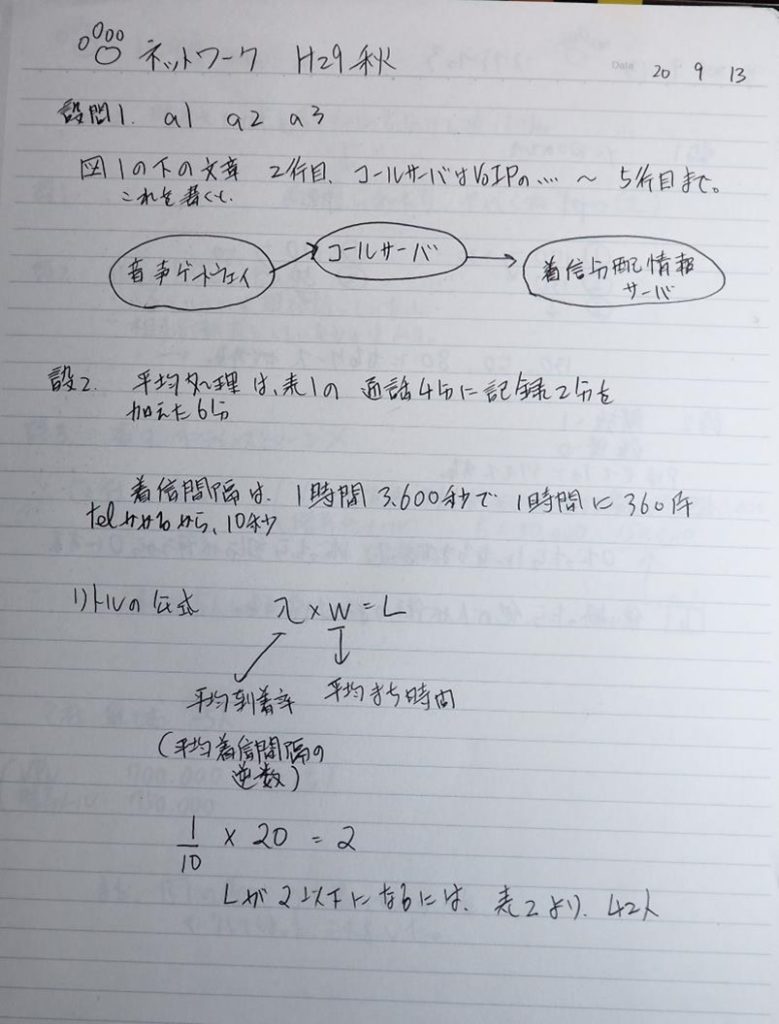 ネットワーク H29 秋
Date 20 9 13
設問1. a1 a2 a3
図1の下の文章 2行目、コールサーバはVoIPの…. ～ 5行目まで。
これを書くと、
音声ゲートウェイ
コールサーバ
着信分配情報
サーバ
設2. 平均処理は、表1の 通話4分に記録2分を
加えた6分
着信間隔は、1時間3.600秒で 1時間に360件
telかかるから、10秒
リトルの公式 λ×W=L
平均到着率 平均まち時間
(平均着信間隔の
逆数)
1/10 × 20 = 2
Lが2以下になるには、表2より、42人